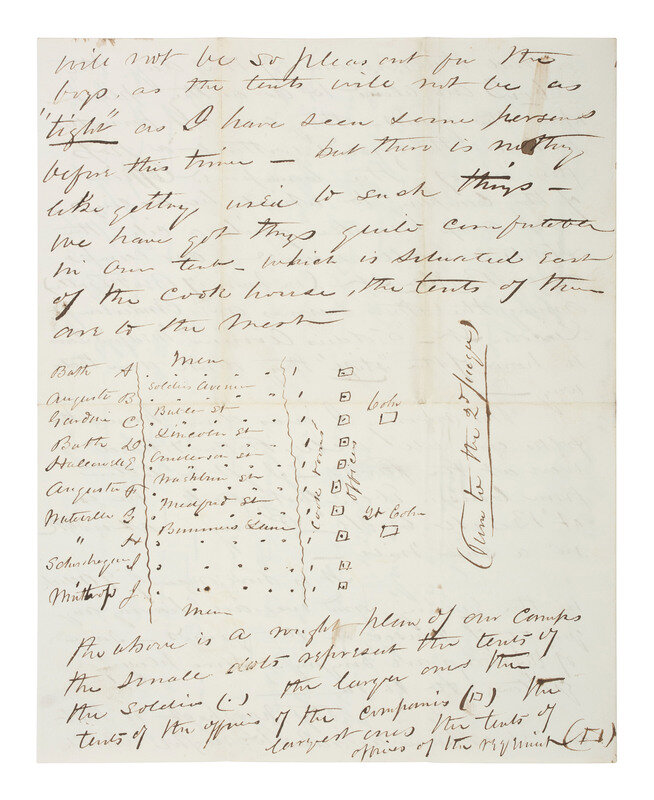 will not be so pleasant for the
boys, as the tents will not be as
"tight" as I have seen some persons
before this time — but there is nothing
like getting used to such things —
we have got things quite comfortable
in our tent — which is situated East
of the Cook house, the tents of the
are to the West —
Men
Bath A
Soldiers Avenue
Augusta B
Butler St
Gardiner C
Lincoln St
Bath D
Anderson St
Hallowell E
Washburn St
Augusta F
Medford St
Waterville G
Bummers Lane
" H
I
Winthrop J
Men
Cook
Officers
Coln
Lt Coln
(Turn to the 2d page)
The above is a rough plan of our Camps
the small dots represent the tents of
the Soldiers (.) the larger ones the
tents of the officers of the companies (□) the
largest ones the tents of
officers of the regiment (□)